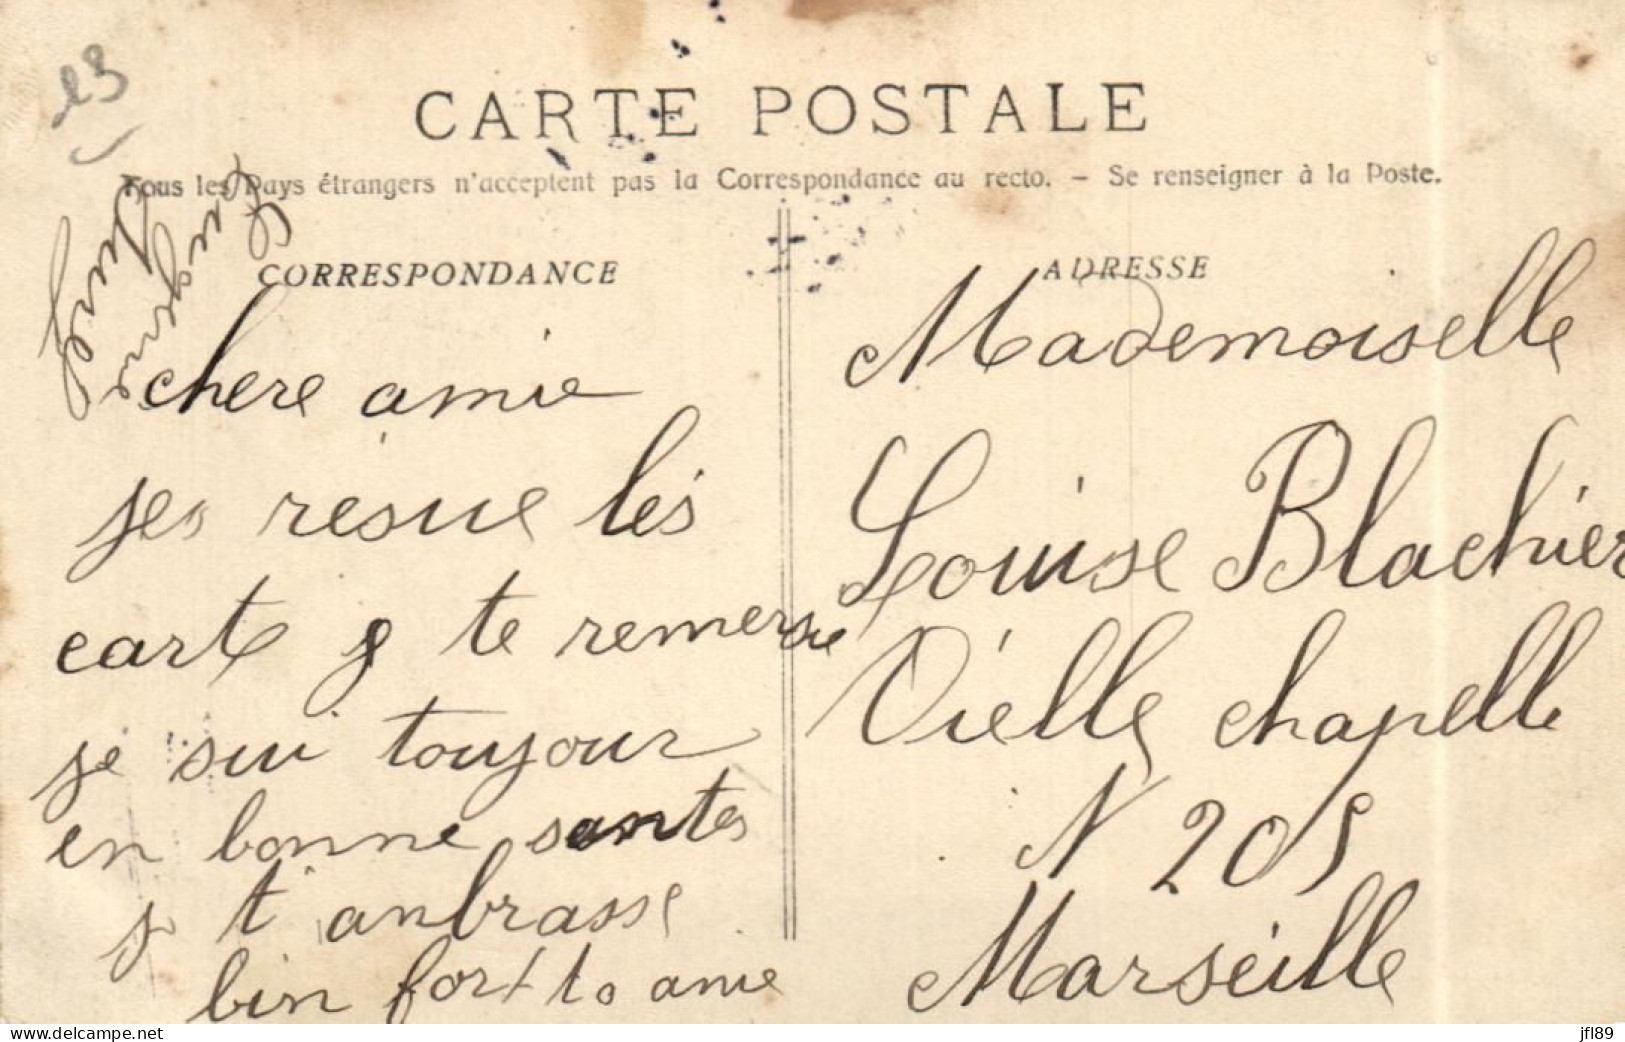 23
CARTE POSTALE
Tous les Pays étrangers n'acceptent pas la Correspondance au recto. – Se renseigner à la Poste.
CORRESPONDANCE
chere amie
jes resue les
carte j te remersie
je sui toujour
en bonne santes
je t anbrasse
bin fort ta amie
Eugenie
ADRESSE
Mademoiselle
Louise Blachier
Vielle chapelle
N 205
Marseille
www.delcampe.net
jfl89